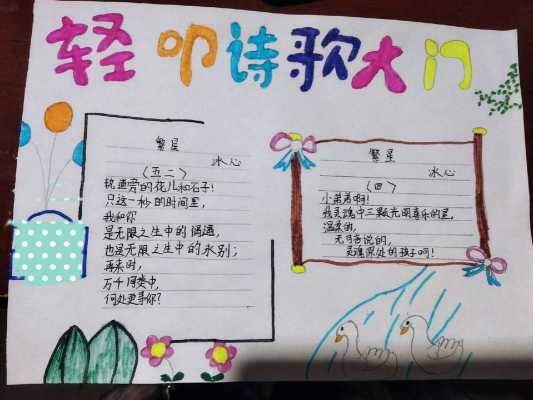 轻叩诗歌大门
繁星
冰心
(五二)
轨道旁的花儿和石子!
只这一秒的时间里,
我和你
是无限之生中的偶遇,
也是无限之生中的永别;
再来时,
万千同类中,
何处更寻你?
繁星
冰心
(四)
小弟弟啊!
我灵魂中三颗光明喜乐的星,
温柔的,
无可言说的,
灵魂深处的孩子呵!